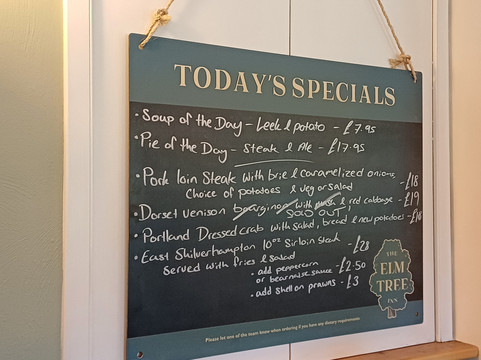 TODAY'S SPECIALS
• Soup of the Day - Leek & potato - £7.95
• Pie of the Day - Steak & Ale - £17.95
• Pork loin Steak with brie & caramelized onions,
choice of potatoes & veg or salad - £18
• Dorset venison bourginon with mash & red cabbage - £19
SOLD OUT
• Portland Dressed crab with salad, bread & new potatoes - £18
• East Shilverhampton 10oz Sirloin Steak - £28
served with fries & salad
• add peppercorn
or bearnaise sauce - £2.50
• add shell on prawns - £3
THE
ELM
TREE
INN
Please let one of the team know when ordering if you have any dietary requirements